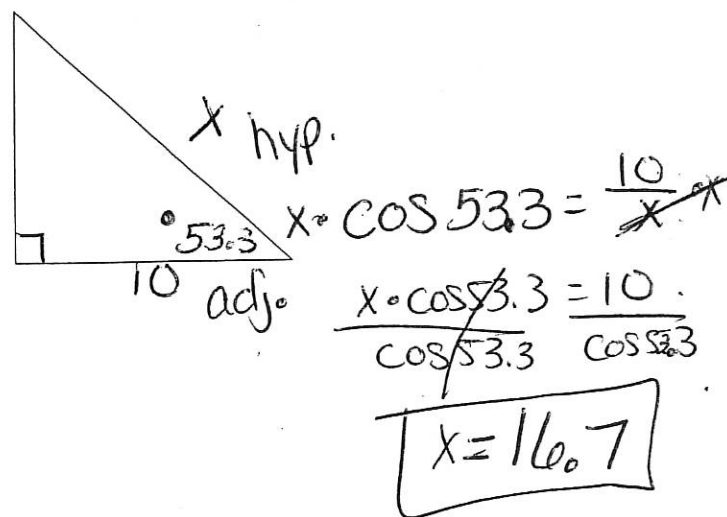 x hyp.
53.3
10 adj.
x • cos 53.3 = 10/x • x
x • cos 53.3 = 10
cos 53.3 cos 53.3
x = 16.7